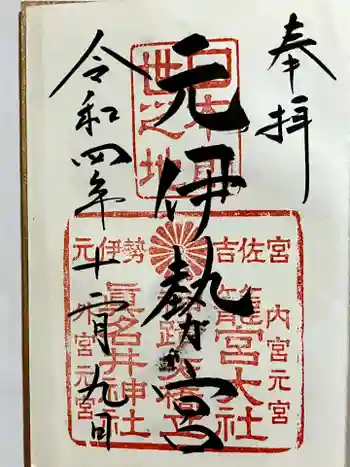 奉拝
元伊勢
宮
令和四年十二月九日
元伊勢
吉佐宮
内宮元宮
籠宮大社
眞名井神社
外宮元宮